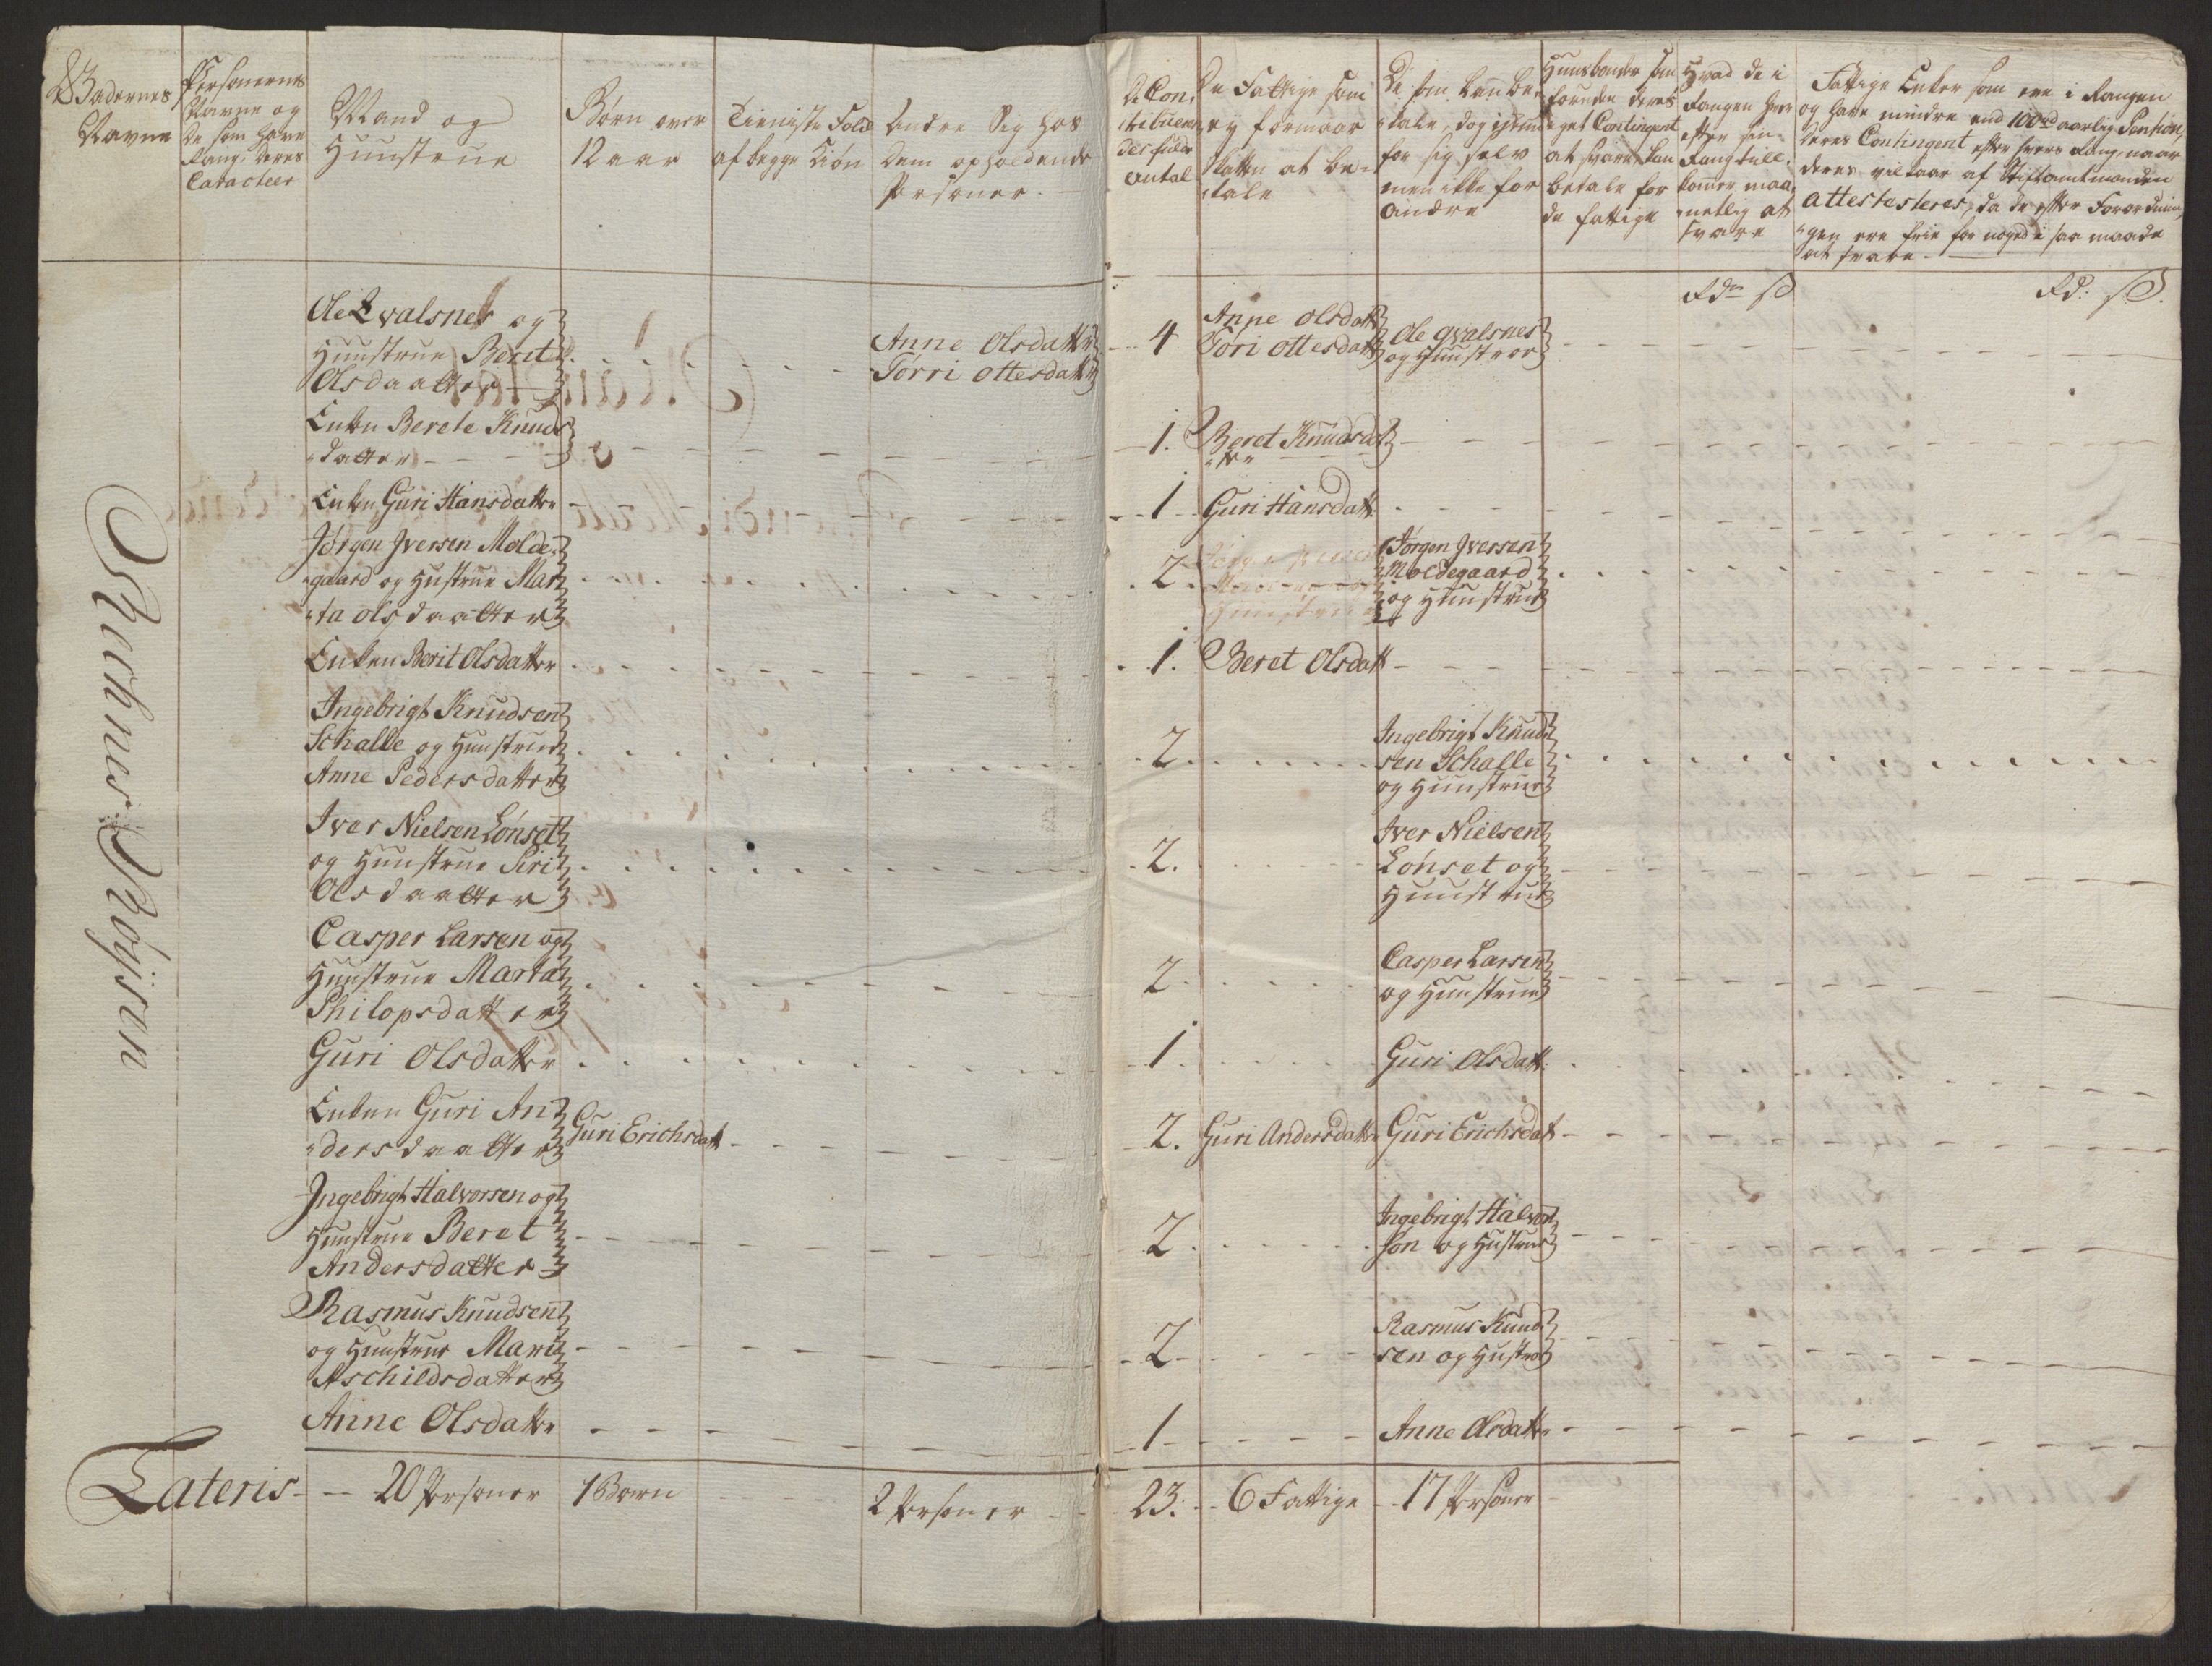 Gadernes
Navne
Personernes
Navne og
de som have
Rang, deres
Caracteer
Mand og
Hunstrue
Børn over
12 aar
Tieniste Folck
af begge Kiøn
Andre Sig hos
dem opholdende
Personer
De Con-
tribuen-
des fulde
Antal
De Fattige som
ey formaar
Skatten at be-
tale
De som kan be-
tale, dog ickun
for sig selv
men ikke for
andre
Huusbonder som
foruden deres
eget Contingent
at svare, kan
betale for
de fattige
Hvad de i
Rangen hver
efter sin
Rang till-
kommer maa-
netlig at
svare
Fattige Enker som ere i Rangen
og have mindre end 100 rd aarlig Pention,
deres Contingent efter hvers Rang, naar
deres vilkaar af Stiftamtmanden
attesteres, da de efter Forordnin-
gen ere frie for noged i saa maade
at svare
Rd ß
Rd: ß.
Reshnes Røysen
Ole Qvalsnes og
Hunstrue Berit
Olsdaatter
Anne Olsdatter
Tørri Ottesdatter
4
Anne Olsdatt
Töri Ottesdatt
Ole Qvalsnes
og Hunstrue
Enken Berete Knuds
datter
1.
Beret Knudsdat
ter
Enken Guri Hansdatter
1
Guri Hansdatt:
Jørgen Iversen Molde-
gaard og Hustrue Mar
ta Olsdaatter
2
Jørgen Iversen
Moldegaard
og Hunstrue
Enken Berit Olsdatter
1.
Beret Olsdatt
Ingebrigt Knudsen
Schalle og Hunstrue
Anne Pedersdatter
2
Ingebrigt Knud
sen Schalle
og Hunstrue
Iver Nielsen Lönset
og Hunstrue Siri
Olsdaatter
2.
Iver Nielsen
Lönset og
Hunstrue
Casper Larsen og
Hunstrue Marta
Philopsdatter
2
Casper Larsen
og Hunstrue
Guri Olsdatter
1
Guri Olsdatt:
Enken Guri An
dersdaatter
Guri Erichsdatt
2.
Guri Andersdatter
Guri Erichsdat
Ingebrigt Halvorsen og
Hunstrue Beret
Andersdatter
2
Ingebrigt Halvor
sön og Hustrue
Rasmus Knudsen
og Hunstrue Mari
Aschildsdatter
2
Rasmus Knud
sen og Hustrue
Anne Olsdatter
1
Anne Olsdatter
Lateris
20 Personer
1 Børn
2 Personer
23.
6 Fattige
17 Personer